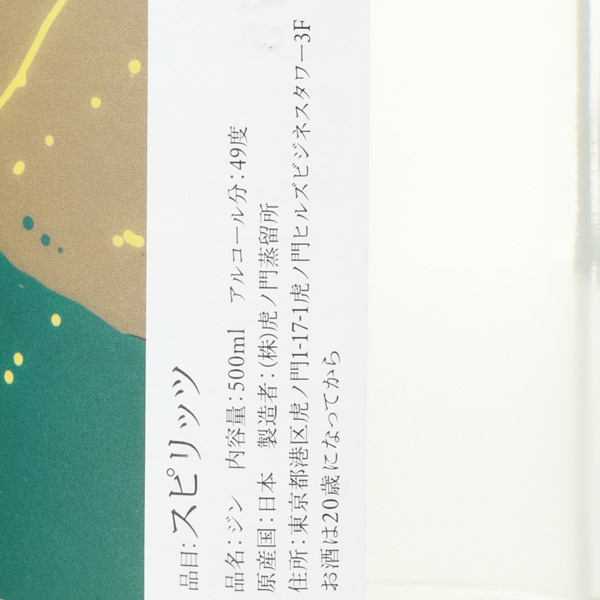 品目:スピリッツ
品名:ジン 内容量:500ml アルコール分:49度
原産国:日本 製造者:(株)虎ノ門蒸留所
住所:東京都港区虎ノ門1-17-1虎ノ門ヒルズビジネスタワー3F
お酒は20歳になってから